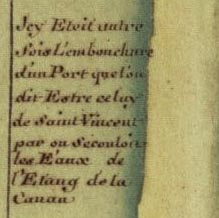 Jcy Etoit autre
fois Lembouchure
d'un Port que l'on
dit Estre celuy
de Saint Vincent
par ou Secouloit
les Eaux de
l'Etang de la
Canau